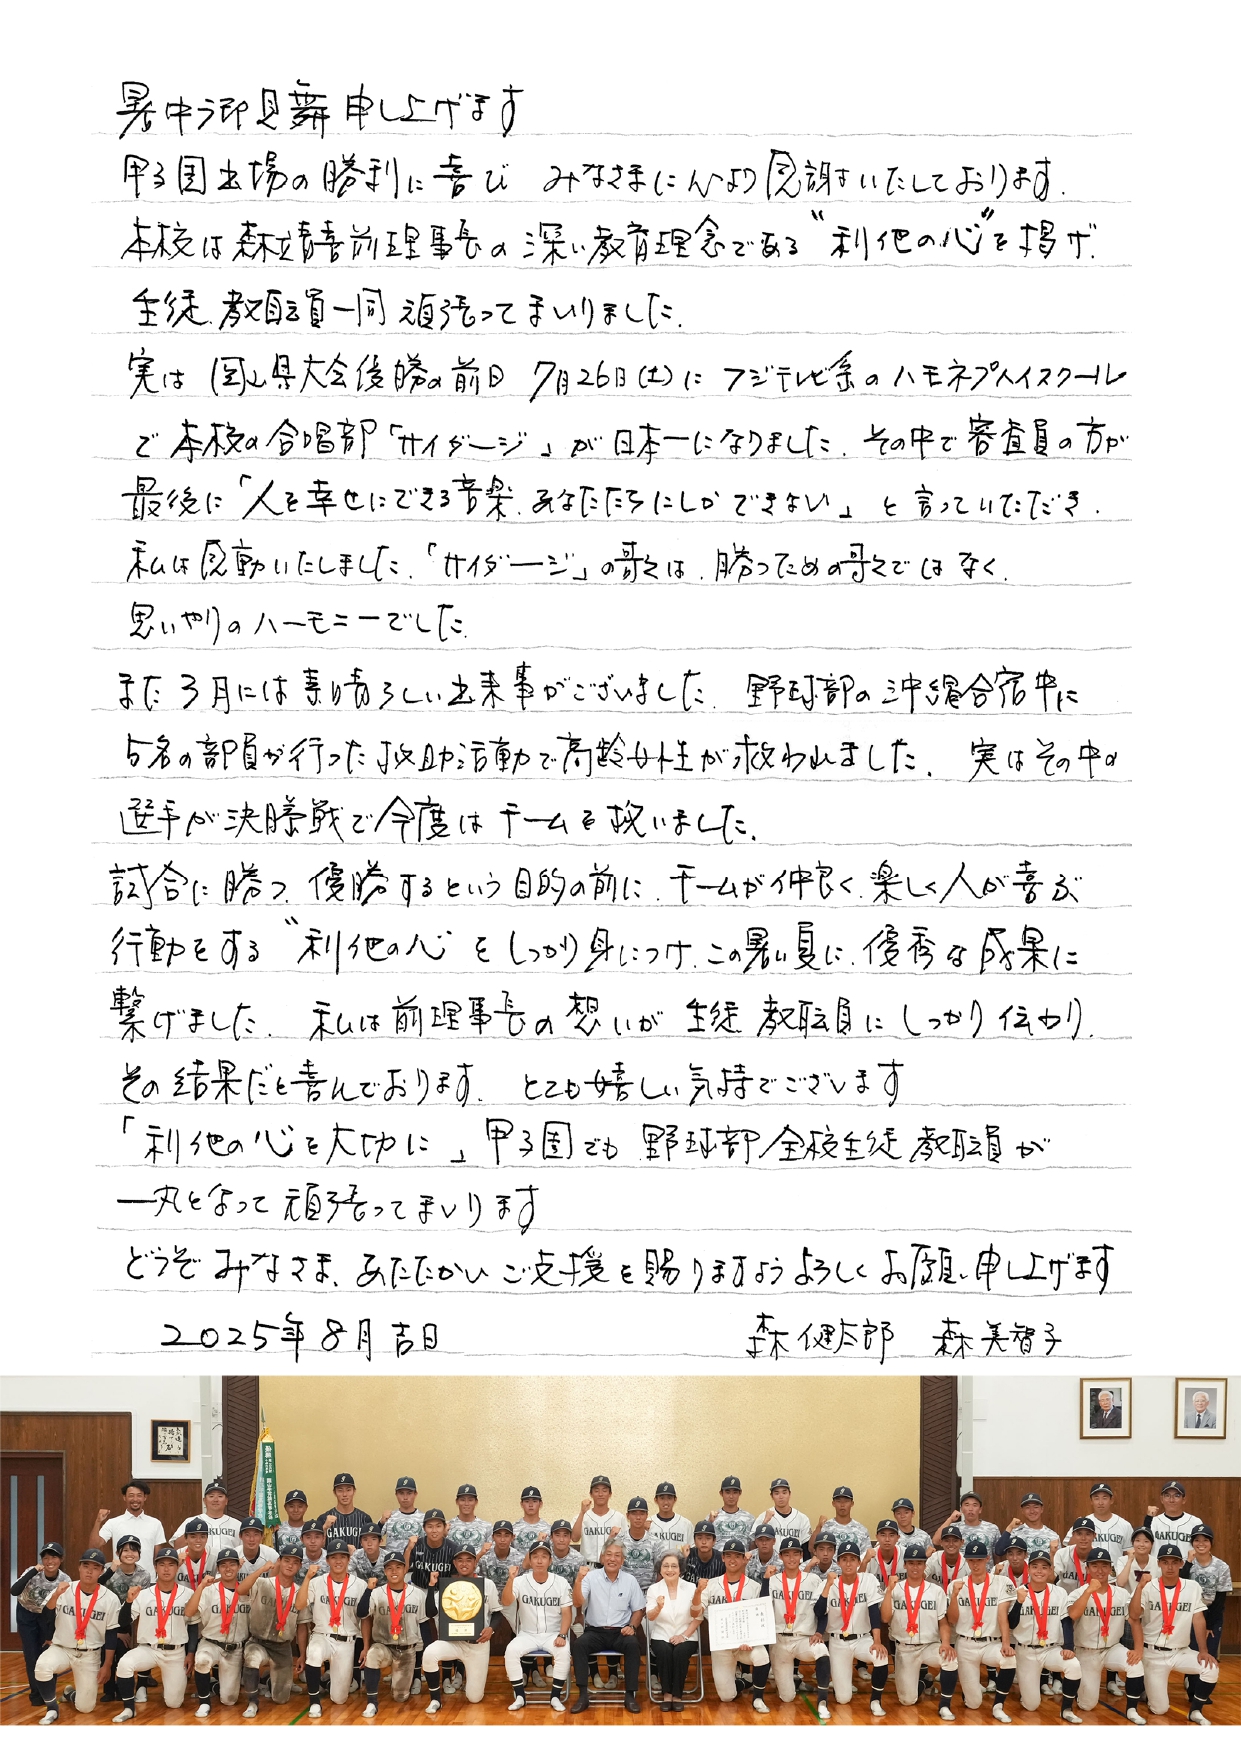 暑中御見舞申し上げます
甲子園出場の勝利に喜び みなさまに心より感謝いたしております.
本校は森靖喜前理事長の深い教育理念である“利他の心”を掲げ.
生徒.教職員一同 頑張ってまいりました.
実は 岡山県大会優勝の前日 7月26日(土)に フジテレビ系のハモネプハイスクール
で 本校の合唱部「サイダージ」が日本一になりました. その中で審査員の方が
最後に「人を幸せにできる音楽.あなたたちにしか できない」と言っていただき.
私は感動いたしました.「サイダージ」の歌は.勝つための歌ではなく.
思いやりのハーモニーでした.
また3月には素晴らしい出来事がございました. 野球部の沖縄合宿中に
5名の部員が行った救助活動で高齢女性が救われました. 実はその中の
選手が決勝戦で今度はチームを救いました.
試合に勝つ.優勝するという目的の前に.チームが仲良く.楽しく人が喜ぶ
行動をする“利他の心”をしっかり身につけ.この暑い夏に.優秀な成果に
繋げました. 私は前理事長の想いが 生徒 教職員にしっかり伝わり.
その結果だと喜んでおります. とても嬉しい気持でございます
「利他の心を大切に」甲子園でも 野球部/全校生徒 教職員が
一丸となって頑張ってまいります
どうぞみなさま.あたたかいご支援を賜りますようよろしくお願い申し上げます
2025年8月吉日 森健太郎 森美智子
優勝
GAKUGEI
GAKUGEI
GAKUGEI
GAKUGEI
GAKUGEI
GAKUGEI
GAKUGEI
GAKUGEI
GAKUGEI
GAKUGEI